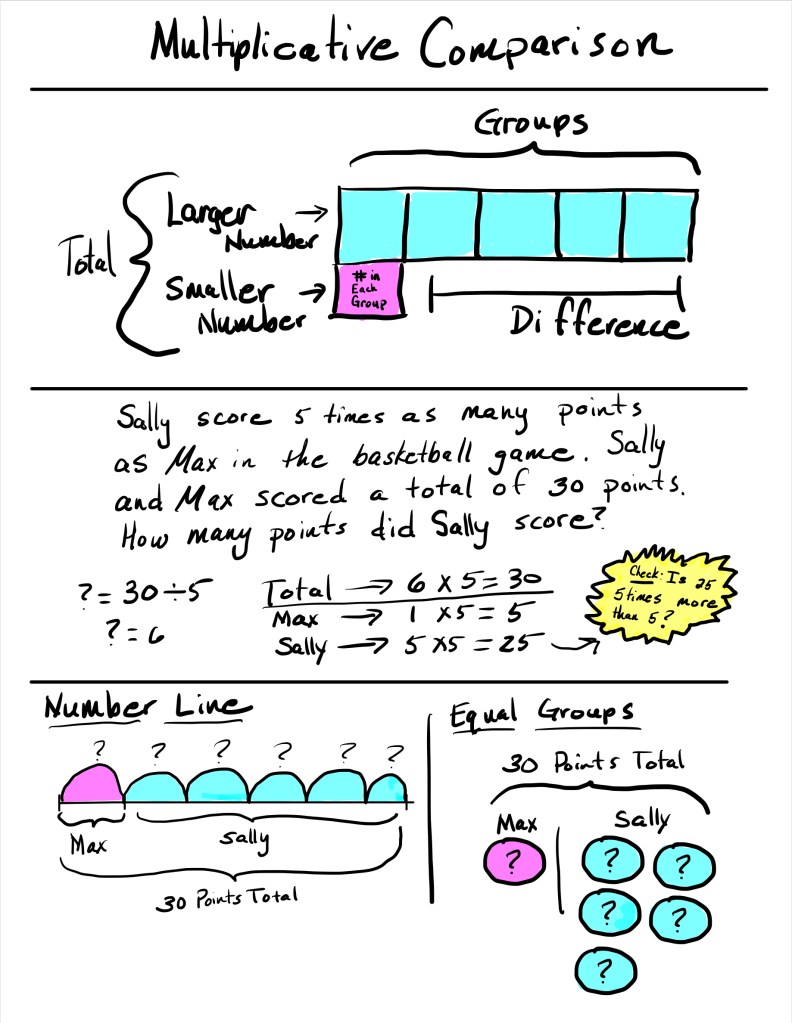 Multiplicative Comparison
Groups
Total
Larger
Number
Smaller
Number
# in
Each
Group
Difference
Sally score 5 times as many points
as Max in the basketball game. Sally
and Max scored a total of 30 points.
How many points did Sally score?
? = 30 ÷ 5
? = 6
Total → 6 x 5 = 30
Max → 1 x 5 = 5
Sally → 5 x 5 = 25
Check: Is 25
5 times more
than 5?
Number Line
? ? ? ? ? ?
Max
Sally
30 Points Total
Equal Groups
30 Points Total
Max
Sally
?
? ?
? ?
?